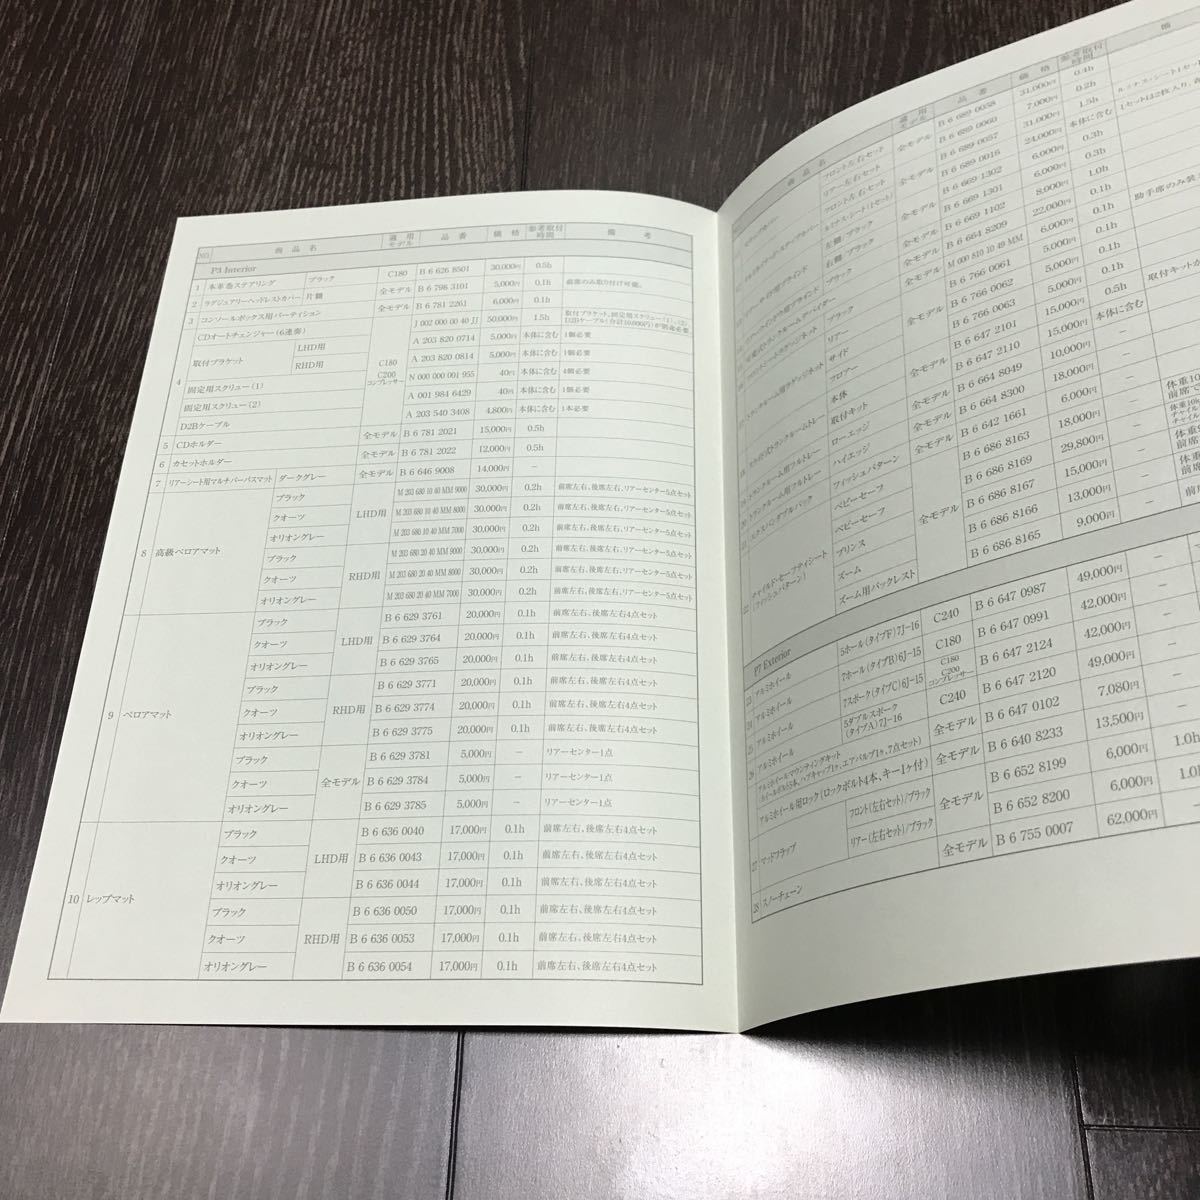 NO. 商品名 適用モデル 品番 価格 参考取付時間 備考
P3 Interior
1 本革巻ステアリング ブラック C180 B 6 626 8501 30,000円 0.5h
2 ラグジュアリーヘッドレストカバー 片側 全モデル B 6 798 3101 5,000円 0.1h 前席のみ取り付け可能。
3 コンソールボックス用パーティション 全モデル B 6 781 2261 6,000円 0.1h
4 CDオートチェンジャー(6連奏) C180 C200 コンプレッサー J 002 000 00 40 JJ 50,000円 1.5h 取付ブラケット、固定用スクリュー(1)、(2)、D2Bケーブル(合計10,000円)が別途必要
取付ブラケット LHD用 A 203 820 0714 5,000円 本体に含む 1個必要
RHD用 A 203 820 0814 5,000円 本体に含む 1個必要
固定用スクリュー(1) N 000 000 001 955 40円 本体に含む 4個必要
固定用スクリュー(2) A 001 984 6429 40円 本体に含む 1個必要
D2Bケーブル A 203 540 3408 4,800円 本体に含む 1本必要
5 CDホルダー 全モデル B 6 781 2021 15,000円 0.5h
6 カセットホルダー 全モデル B 6 781 2022 12,000円 0.5h
7 リアーシート用マルチパーパスマット ダークグレー 全モデル B 6 646 9008 14,000円 －
8 高級ベロアマット ブラック LHD用 M 203 680 10 40 MM 9000 30,000円 0.2h 前席左右、後席左右、リアーセンター5点セット
クオーツ M 203 680 10 40 MM 8000 30,000円 0.2h 前席左右、後席左右、リアーセンター5点セット
オリオングレー M 203 680 10 40 MM 7000 30,000円 0.2h 前席左右、後席左右、リアーセンター5点セット
ブラック RHD用 M 203 680 20 40 MM 9000 30,000円 0.2h 前席左右、後席左右、リアーセンター5点セット
クオーツ M 203 680 20 40 MM 8000 30,000円 0.2h 前席左右、後席左右、リアーセンター5点セット
オリオングレー M 203 680 20 40 MM 7000 30,000円 0.2h 前席左右、後席左右、リアーセンター5点セット
9 ベロアマット ブラック LHD用 B 6 629 3761 20,000円 0.1h 前席左右、後席左右4点セット
クオーツ B 6 629 3764 20,000円 0.1h 前席左右、後席左右4点セット
オリオングレー B 6 629 3765 20,000円 0.1h 前席左右、後席左右4点セット
ブラック RHD用 B 6 629 3771 20,000円 0.1h 前席左右、後席左右4点セット
クオーツ B 6 629 3774 20,000円 0.1h 前席左右、後席左右4点セット
オリオングレー B 6 629 3775 20,000円 0.1h 前席左右、後席左右4点セット
ブラック 全モデル B 6 629 3781 5,000円 － リアーセンター1点
クオーツ B 6 629 3784 5,000円 － リアーセンター1点
オリオングレー B 6 629 3785 5,000円 － リアーセンター1点
10 レップマット ブラック LHD用 B 6 636 0040 17,000円 0.1h 前席左右、後席左右4点セット
クオーツ B 6 636 0043 17,000円 0.1h 前席左右、後席左右4点セット
オリオングレー B 6 636 0044 17,000円 0.1h 前席左右、後席左右4点セット
ブラック RHD用 B 6 636 0050 17,000円 0.1h 前席左右、後席左右4点セット
クオーツ B 6 636 0053 17,000円 0.1h 前席左右、後席左右4点セット
オリオングレー B 6 636 0054 17,000円 0.1h 前席左右、後席左右4点セット
商品名 適用モデル 品番 価格 参考取付時間 備
フロント左右セット 全モデル B 6 689 0058 31,000円 0.4h
リアー左右セット B 6 689 0060 7,000円 0.2h
フロント左右セット 全モデル B 6 689 0057 31,000円 1.5h
ルミナス・シート(1セット) B 6 689 0016 24,000円 本体に含む 1セットは2枚入り
左側 ブラック 全モデル B 6 669 1302 6,000円 0.3h
右側 ブラック B 6 669 1301 6,000円 0.3h
ブラック 全モデル B 6 669 1102 8,000円 1.0h
B 6 664 8209 22,000円 0.1h
ブラック M 000 810 10 49 MM 6,000円 0.1h 助手席のみ装
リアー 全モデル B 6 766 0061 5,000円 0.1h
サイド B 6 766 0062 5,000円 0.1h
フロアー B 6 766 0063 5,000円 0.1h
本体 全モデル B 6 647 2101 15,000円 0.5h 取付キットが
取付キット B 6 647 2110 15,000円 本体に含む
ローエッジ 全モデル B 6 664 8049 10,000円
ハイエッジ 全モデル B 6 664 8300 18,000円
フィッシュパターン B 6 642 1661 6,000円
22 チャイルド・セーフティシート(フィッシュパターン) ベビーセーフ 全モデル B 6 686 8163 18,000円
ベビーセーフ B 6 686 8169 29,800円
プリンス B 6 686 8167 15,000円 －
ズーム B 6 686 8166 13,000円 －
ズーム用バックレスト B 6 686 8165 9,000円
P7 Exterior
23 アルミホイール 5ホール(タイプF)7J-16 C240 B 6 647 0987 49,000円 －
24 アルミホイール 7ホール(タイプB)6J-15 C180 B 6 647 0991 42,000円 －
25 アルミホイール 7スポーク(タイプC)6J-15 C180 C200 コンプレッサー B 6 647 2124 42,000円 －
26 アルミホイール 5ダブルスポーク(タイプA)7J-16 C240 B 6 647 2120 49,000円 －
アルミホイールマウンティングキット(ホイールボルト5本、ハブキャップ1ヶ、エアバルブ1ヶ、7点セット) 全モデル B 6 647 0102 7,080円 －
アルミホイール用ロック(ロックボルト4本、キー1ヶ付) 全モデル B 6 640 8233 13,500円 －
27 マッドフラップ フロント(左右セット)/ブラック 全モデル B 6 652 8199 6,000円 1.0h
リアー(左右セット)/ブラック B 6 652 8200 6,000円 1.0h
28 スノーチェーン 全モデル B 6 755 0007 62,000円